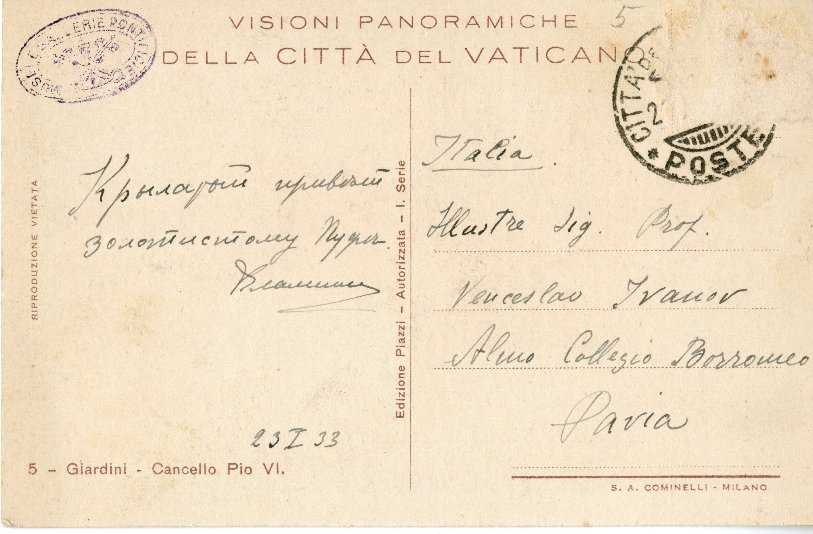 VISIONI PANORAMICHE
DELLA CITTÀ DEL VATICANO
5
CITTA'
POSTE
RIPRODUZIONE VIETATA
Крылатый привет
золотистому
23 I 33
5 - Giardini - Cancello Pio VI.
Edizione Piazzi - Autorizzata - I. Serie
Italia.
Illustre Sig. Prof.
Venceslao Ivanov
Almo Collegio Borromeo
Pavia
S. A. COMINELLI - MILANO